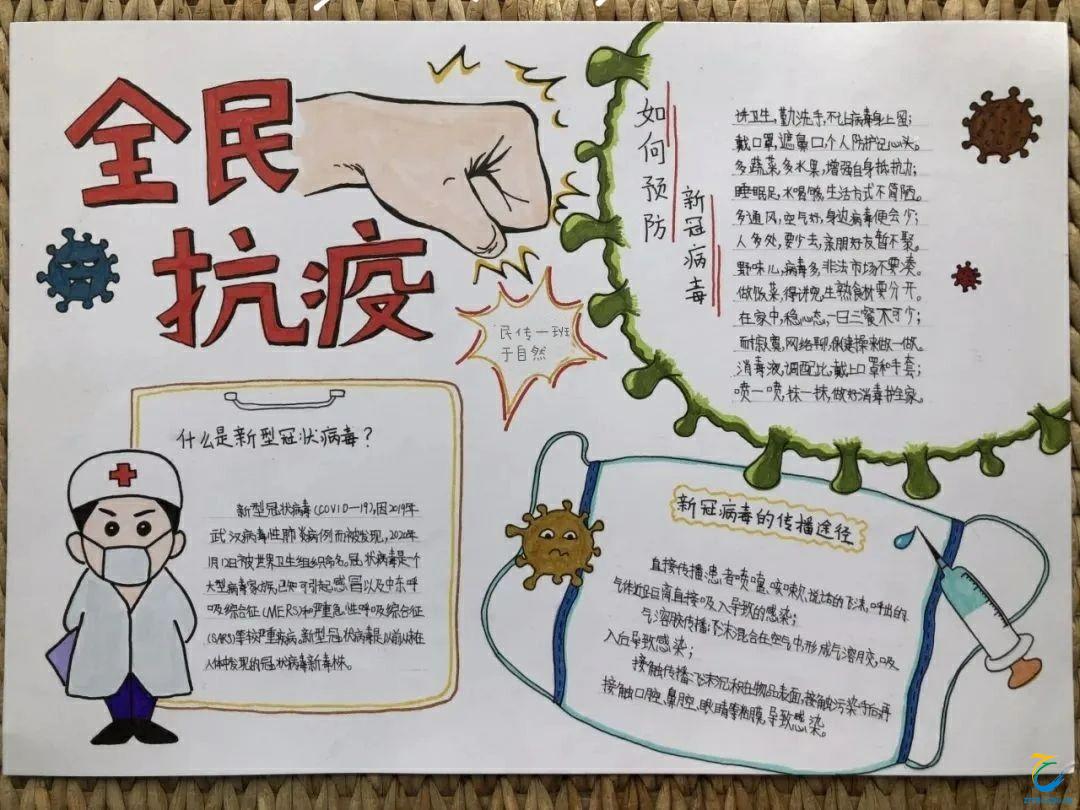 全民
抗疫
民传一班
于自然
如何预防
新冠病毒
讲卫生,勤洗手,不让病毒身上留;
戴口罩,遮鼻口,个人防护记心头。
多蔬菜,多水果,增强自身抵抗力;
睡眠足,水喝够,生活方式不简陋。
多通风,空气好,身边病毒便会少;
人多处,要少去,亲朋好友暂不聚。
野味儿,病毒多,非法市场不要凑。
做饭菜,得讲究,生熟食材要分开。
在家中,稳心态,一日三餐不可少;
耐寂寞,网络聊,保健操来做一做。
消毒液,调配比,戴上口罩和手套;
喷一喷,抹一抹,做好消毒护全家。
什么是新型冠状病毒?
新型冠状病毒(COVID—19),因2019年
武汉病毒性肺炎病例而被发现,2020年
1月12日被世界卫生组织命名。冠状病毒是一个
大型病毒家族,已知可引起感冒以及中东呼
吸综合征(MERS)和严重急性呼吸综合征
(SARS)等较严重疾病。新型冠状病毒是以前从未在
人体中发现的冠状病毒新毒株。
新冠病毒的传播途径
直接传播:患者喷嚏、咳嗽、说话的飞沫,呼出的
气体近距离直接吸入导致的感染;
气溶胶传播:飞沫混合在空气中,形成气溶胶,吸
入后导致感染;
接触传播:飞沫沉积在物品表面,接触污染手后,再
接触口腔、鼻腔、眼睛等粘膜,导致感染。